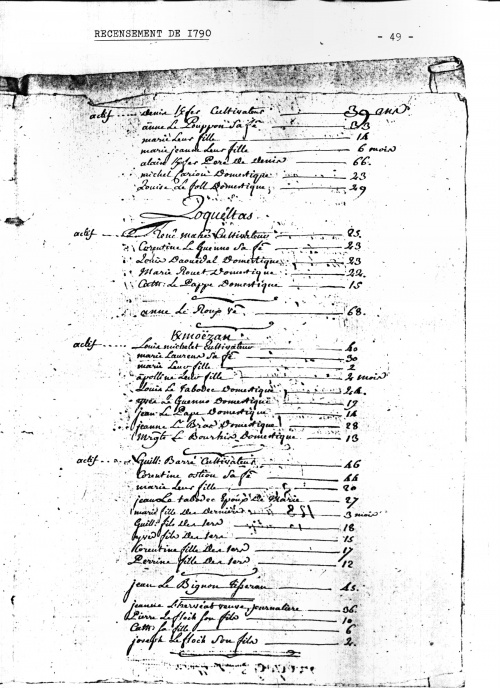 RECENSEMENT DE 1790 - 49 -
actif denis Kfer Cultivateur 39 ans
anne Le Pouppon Sa fe 33
marie Leur fille 14
marie jeanne Leur fille 6 mois
alain Kfer Pere De Denis 66.
michel Cariou Domestique 23
Louise Le foll Domestique 29
Loqueltas
actif René mahé Cultivateur 25.
Corentine Le Guenno Sa fe 23
Louis Daouëdal Domestique 23
Marie Rouet Domestique 22.
Cath: Le Pappe Domestique 15
anne Le Roux ve 68.
Kmoëzan
actif Louis michelet Cultivateur 40
marie Laurens Sa fe 30
marie Leur fille 2
apolline Leur fille 2 mois
Louis Le tabodec Domestique 24.
yves Le Guenno Domestique 19
jean Le Pape Domestique 14
jeanne Le Bras Domestique 28
Mrgte Le Bourhis Domestique 13
actif Guill: Barré Cultivateur 46
Corentine ostiou Sa fe 44
marie Leur fille 20
jean Le tabodec Epoux De Marie 27
marie fille Des Derniers 3 mois
Guill: fils Des 1ers 18
yves fils Des 1ers 15
Corentine fille Des 1ers 17
Perrine fille Des 1ers 12
jean Le Bignon tisseran 45.
jeanne Lhervéat veuve, journaliere 36.
Pierre Le floch Son fils 10
Cath: Sa fille 6
joseph Le floch Son fils 2.